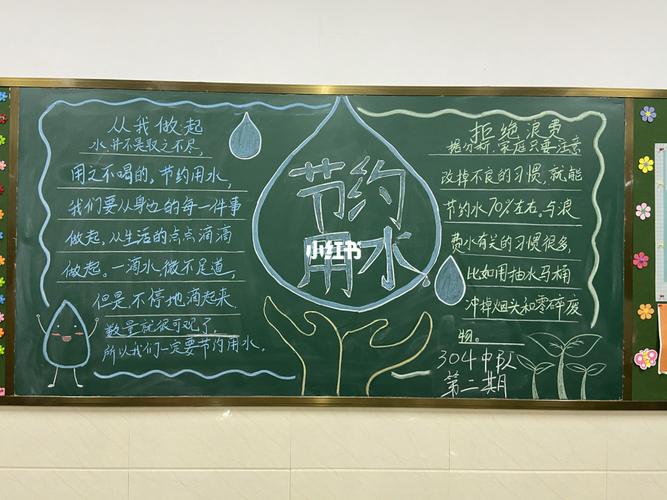 从我做起
水并不是取之不尽,
用之不喝的,节约用水,
我们要从身边的每一件事
做起,从生活的点点滴滴
做起。一滴水微不足道,
但是不停地滴起来,
数量就很可观了,
所以我们一定要节约用水.
节约
用水
小红书
拒绝浪费
据分析,家庭只要注意
改掉不良的习惯,就能
节约水70%左右。与浪
费水有关的习惯很多,
比如用抽水马桶
冲掉烟头和零碎废
物。
304中队
第二期